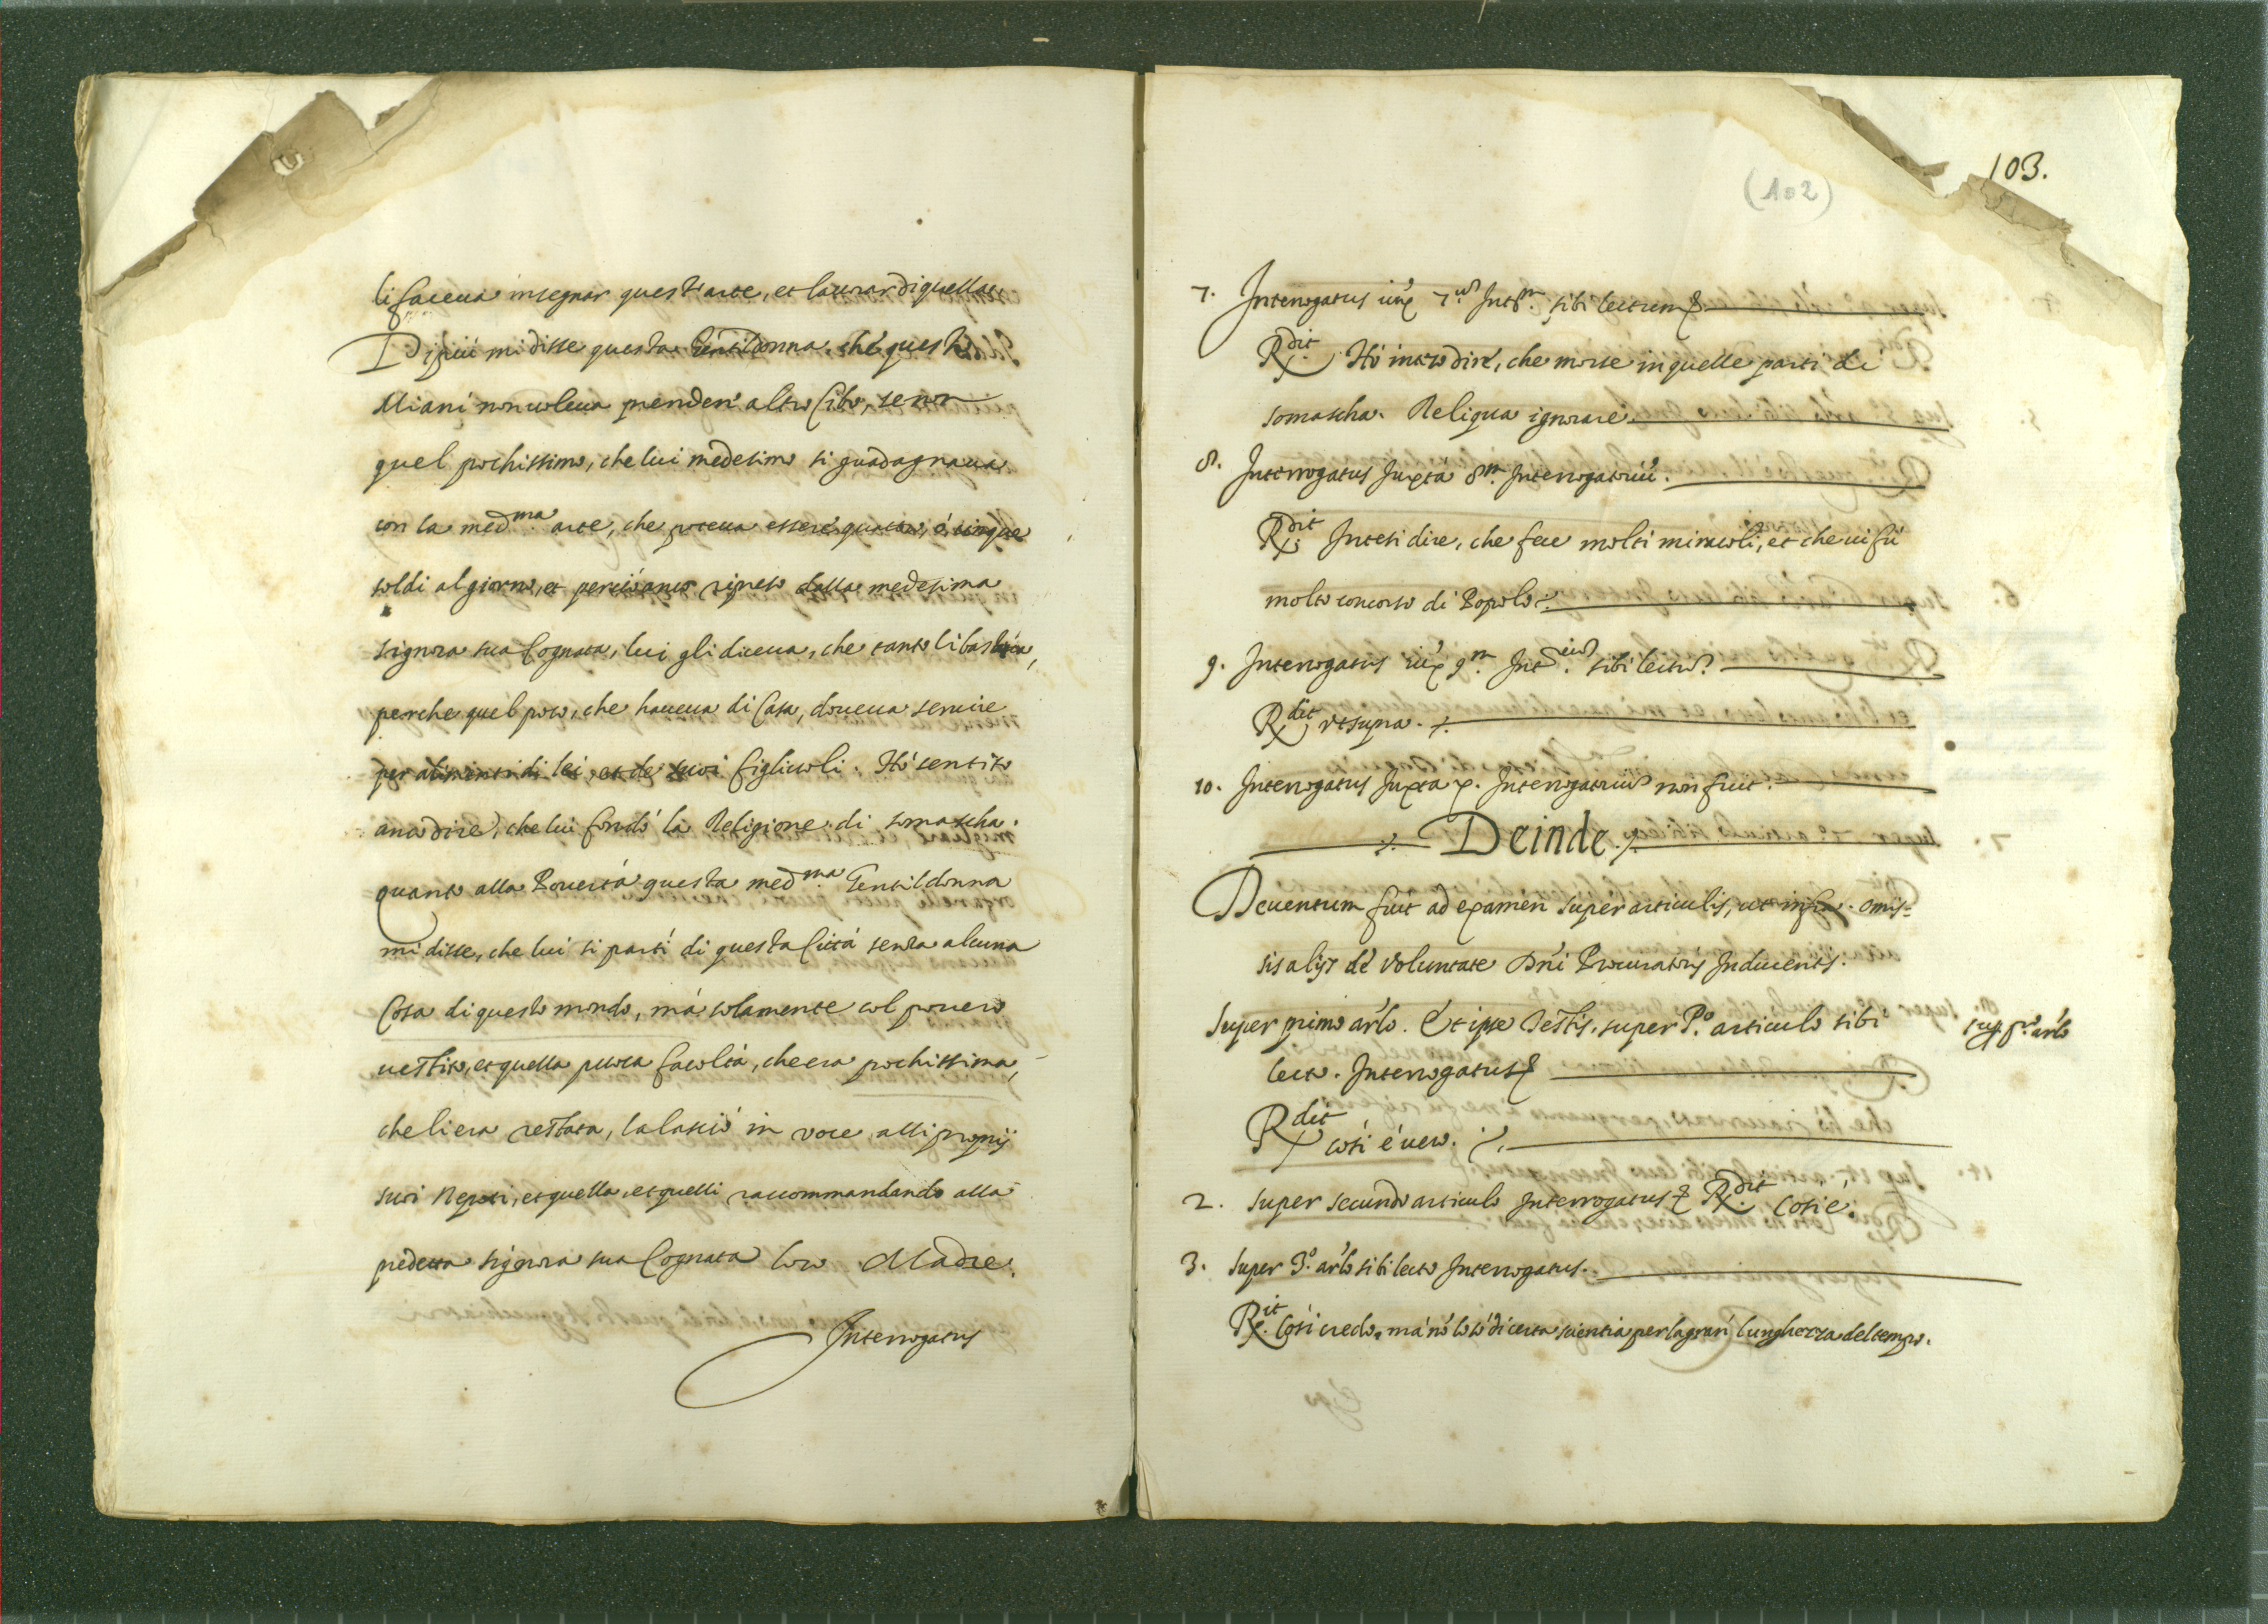 li faceua insegnar quest'arte, et laurar di quella.
Di piú mi disse questa Gentildonna, ché questo
Miani non voleua prender' altro Cibo, se non
quel pochissimo, che lui medesimo si guadagnaua
con la med.ma arte, che poteua essere quattro, ó cinque
soldi al giorno, et perció anco ripreso dalla medesima
signora sua Cognata, lui gli diceua, che tanto li bastaua,
perche quel poco, che haueua di Casa, doueua seruire
per alimenti di lei, et de suoi figliuoli. Hó sentito
anco dire, che lui fondó la Religione di somascha.
quanto alla Pouertá questa med.ma Gentildonna
mi disse, che lui si partí di questa Cittá senza alcuna
Cosa di questo mondo, má solamente col pouero
uestito, et quella puoca facoltá, che era pochissima,
che li era restata, la lasció in voce alli proprij
suoi Nepoti, et quella, et quelli raccommandando alla
predetta signora sua Cognata loro Madre.
Interrogatus
103.
(102)
7. Interrogatus iux 7.um Int.m sibi lectum &
R.dit Hó inteso dire, che morse in quelle parti di
somascha. Reliqua ignorare.
8. Interrogatus Juxta 8.m Interrogatoriú.
R.dit Intesi dire, che fece molti miracoli, et che ui fú
molto concorso di Popolo.
9. Interrogatus iux 9.m Int. sibi lectum
R.dit vt supra.
10. Interrogatus Juxta x. Interrogatorium non fuit.
Deinde
Deuentum fuit ad examen super articulis, ut infra. omis=
sis alijs de voluntate Dñi Procuratoris Inducentis.
Super primo arlo. Et ipse Testis, super P.o articulo sibi
sup. p.o arlo
lecto. Interrogatus &
R.dit cosí é uero.
2. super secundo articulo Interrogatus & R.dit Cosi é.
3. super 3.o arlo sibi lecto Interrogatus.
R.it Cosí credo, má nó lo só di certa scientia per la gran lunghezza del tempo.